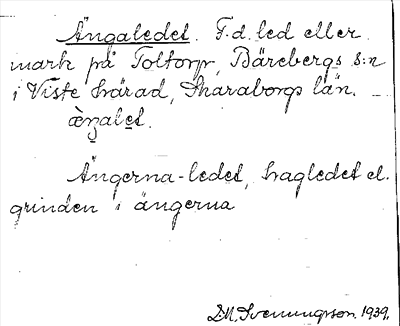 Ängaledet. F.d. led eller
mark på Toltorp, Bärebergs s:n
i Viste härad, Skaraborgs län.
æŋalet.
Ängerna-ledet, hagledet el.
grinden i ängerna
D.M. Svenungsson. 1939.